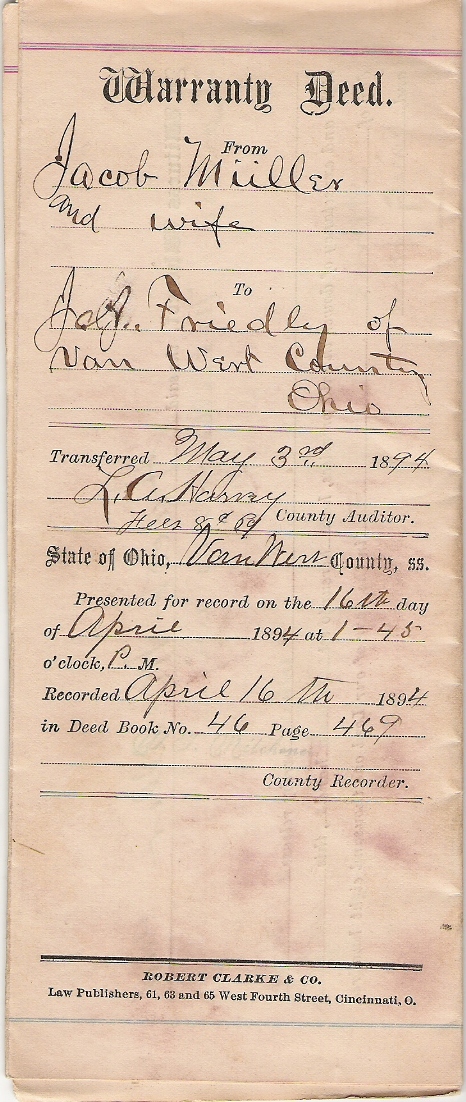 Warranty Deed.
From
Jacob Müller
and wife
To
Friedly of
Van Wert County
Ohio
Transferred May 3rd 1894
L. A. Harvey
Fees County Auditor.
State of Ohio, Van Wert County, ss.
Presented for record on the 16th day
of April 1894 at 1-45
o'clock, P. M.
Recorded April 16th 1894
in Deed Book No. 46 Page 469
County Recorder.
ROBERT CLARKE & CO.
Law Publishers, 61, 63 and 65 West Fourth Street, Cincinnati, O.